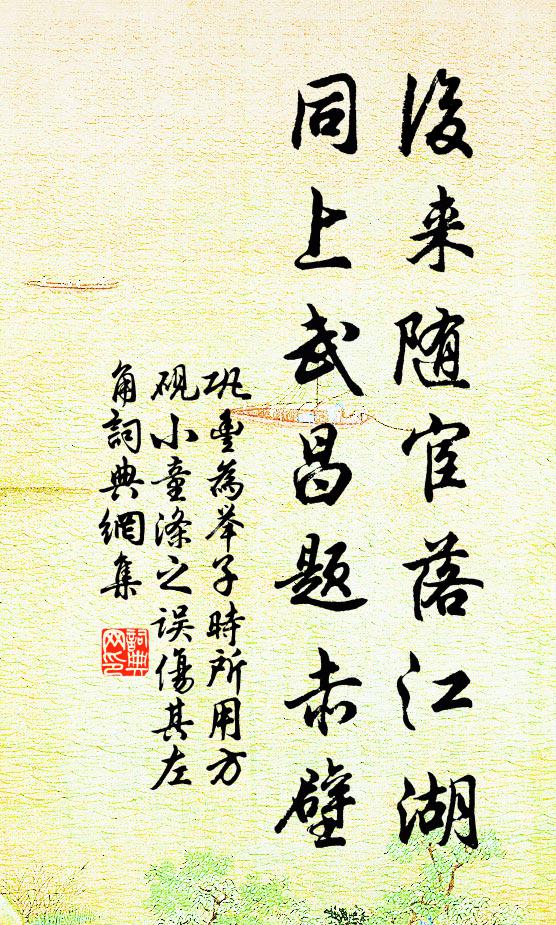 後来随宦落江湖
同上武昌题赤壁
巩豊為举子時所用方
砚小童滌之误傷其左
角詞典網集
詞典网印